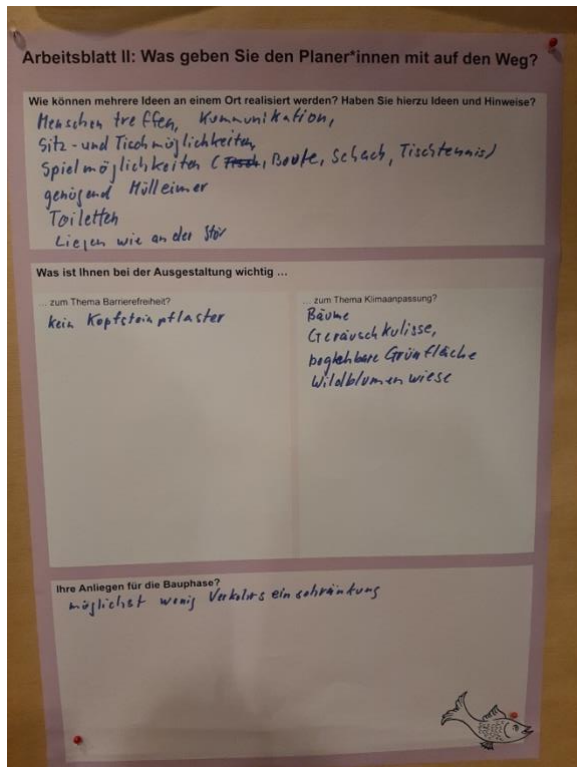 Arbeitsblatt II: Was geben Sie den Planer*innen mit auf den Weg?
Wie können mehrere Ideen an einem Ort realisiert werden? Haben Sie hierzu Ideen und Hinweise?
Menschen treffen, Kommunikation,
Sitz- und Tischmöglichkeiten
Spielmöglichkeiten (, Boule, Schach, Tischtennis)
genügend Mülleimer
Toiletten
Liegen wie an der Stör
Was ist Ihnen bei der Ausgestaltung wichtig ...
... zum Thema Barrierefreiheit?
kein Kopfsteinpflaster
... zum Thema Klimaanpassung?
Bäume
Geräuschkulisse,
begehbare Grünfläche
Wildblumenwiese
Ihre Anliegen für die Bauphase?
möglichst wenig Verkehrseinschränkung